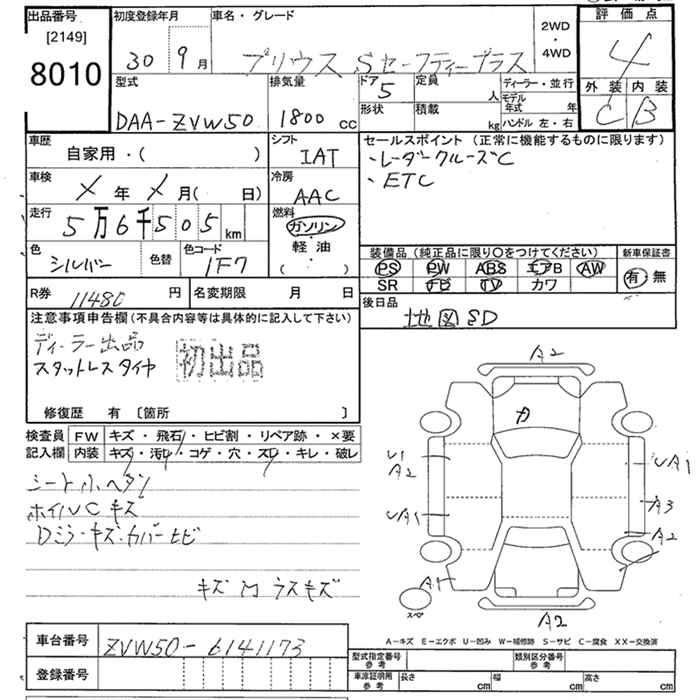 出品番号
[2149]
8010
初度登録年月
30 9月
車名・グレード
プリウス Sセーフティープラス
2WD
・
4WD
評価点
4
外装 内装
C B
型式
DAA-ZVW50
排気量
1800 cc
ドア
5
形状
定員
人
積載
kg
ディーラー・並行
モデル年式 年
ハンドル 左・右
車歴
自家用・( )
シフト
IAT
セールスポイント (正常に機能するものに限ります)
・レーダークルーズC
・ETC
車検
年 月( 日)
冷房
AAC
走行
5万6千505km
燃料
ガソリン
・
軽油
・
( )
色
シルバー
色替
色コード
1F7
装備品 (純正品に限り○をつけてください)
PS PW ABS エアB AW
SR TV カワ
新車保証書
有 無
R券
11480円
名変期限 月 日
後日品
地図SD
注意事項申告欄 (不具合内容等は具体的に記入して下さい)
ディーラー出品
スタットレスタイヤ
初出品
修復歴 有 〔箇所 〕
検査員記入欄
FW キズ・飛石・ヒビ割・リペア跡・×要
内装 キズ・汚レ・コゲ・穴・スレ・キレ・破レ
シート小ヘタリ
ホイルCキズ
Dミラーキズ・カバーヒビ
キズ
A2
U1
A2
UA1
A1
UA1
A3
A2
スペ
A2
A-キズ E-エクボ U-凹み W-補修跡 S-サビ C-腐食 XX-交換済
車台番号
ZVW50-6141173
登録番号
型式指定番号
参考
類別区分番号
参考
車庫証明用
参考
長さ cm
幅 cm
高さ cm